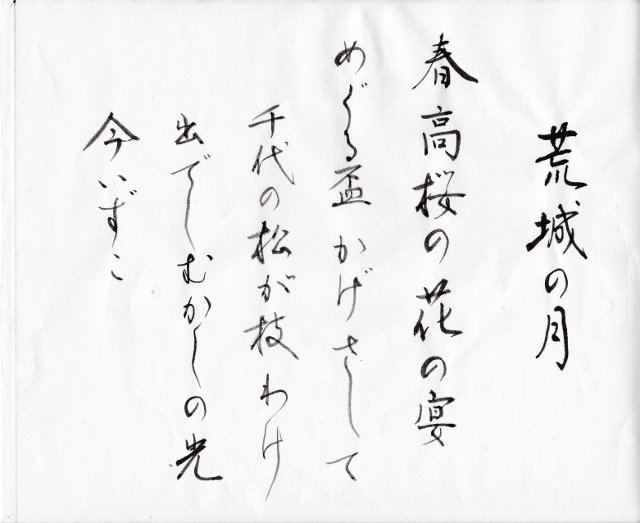 荒城の月
春高桜の花の宴
めぐる盃かげさして
千代の松が枝わけ
出でしむかしの光
今いずこ